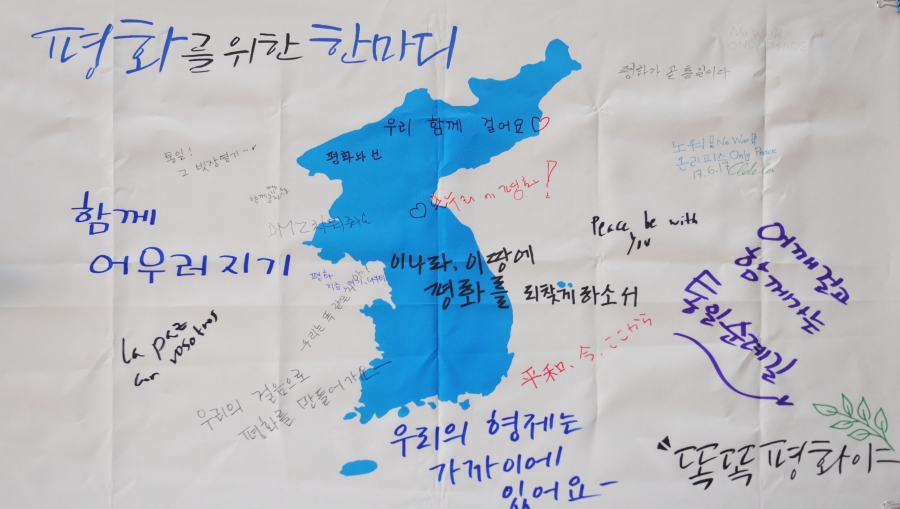 평화를위한 한마디
No War
ONLY PEACE
평화가 곧 통일이다
우리 함께 걸어요♡
평화와 번
통일!
그 빗장열기~
노워 No War
온리피스 Only Peace
17.6.17
함께
어우러지기
우리 평화!
Peace, be with
you
이나라, 이땅에
평화를 되찾게하소서
어깨걸고
함께가는
통일순례길
평화
La paz
con vosotros
平和、今、ここから
우리의 걸음으로
평화를 만들어가요
우리의 형제는
가까이에
있어요~
"똑똑평화야~